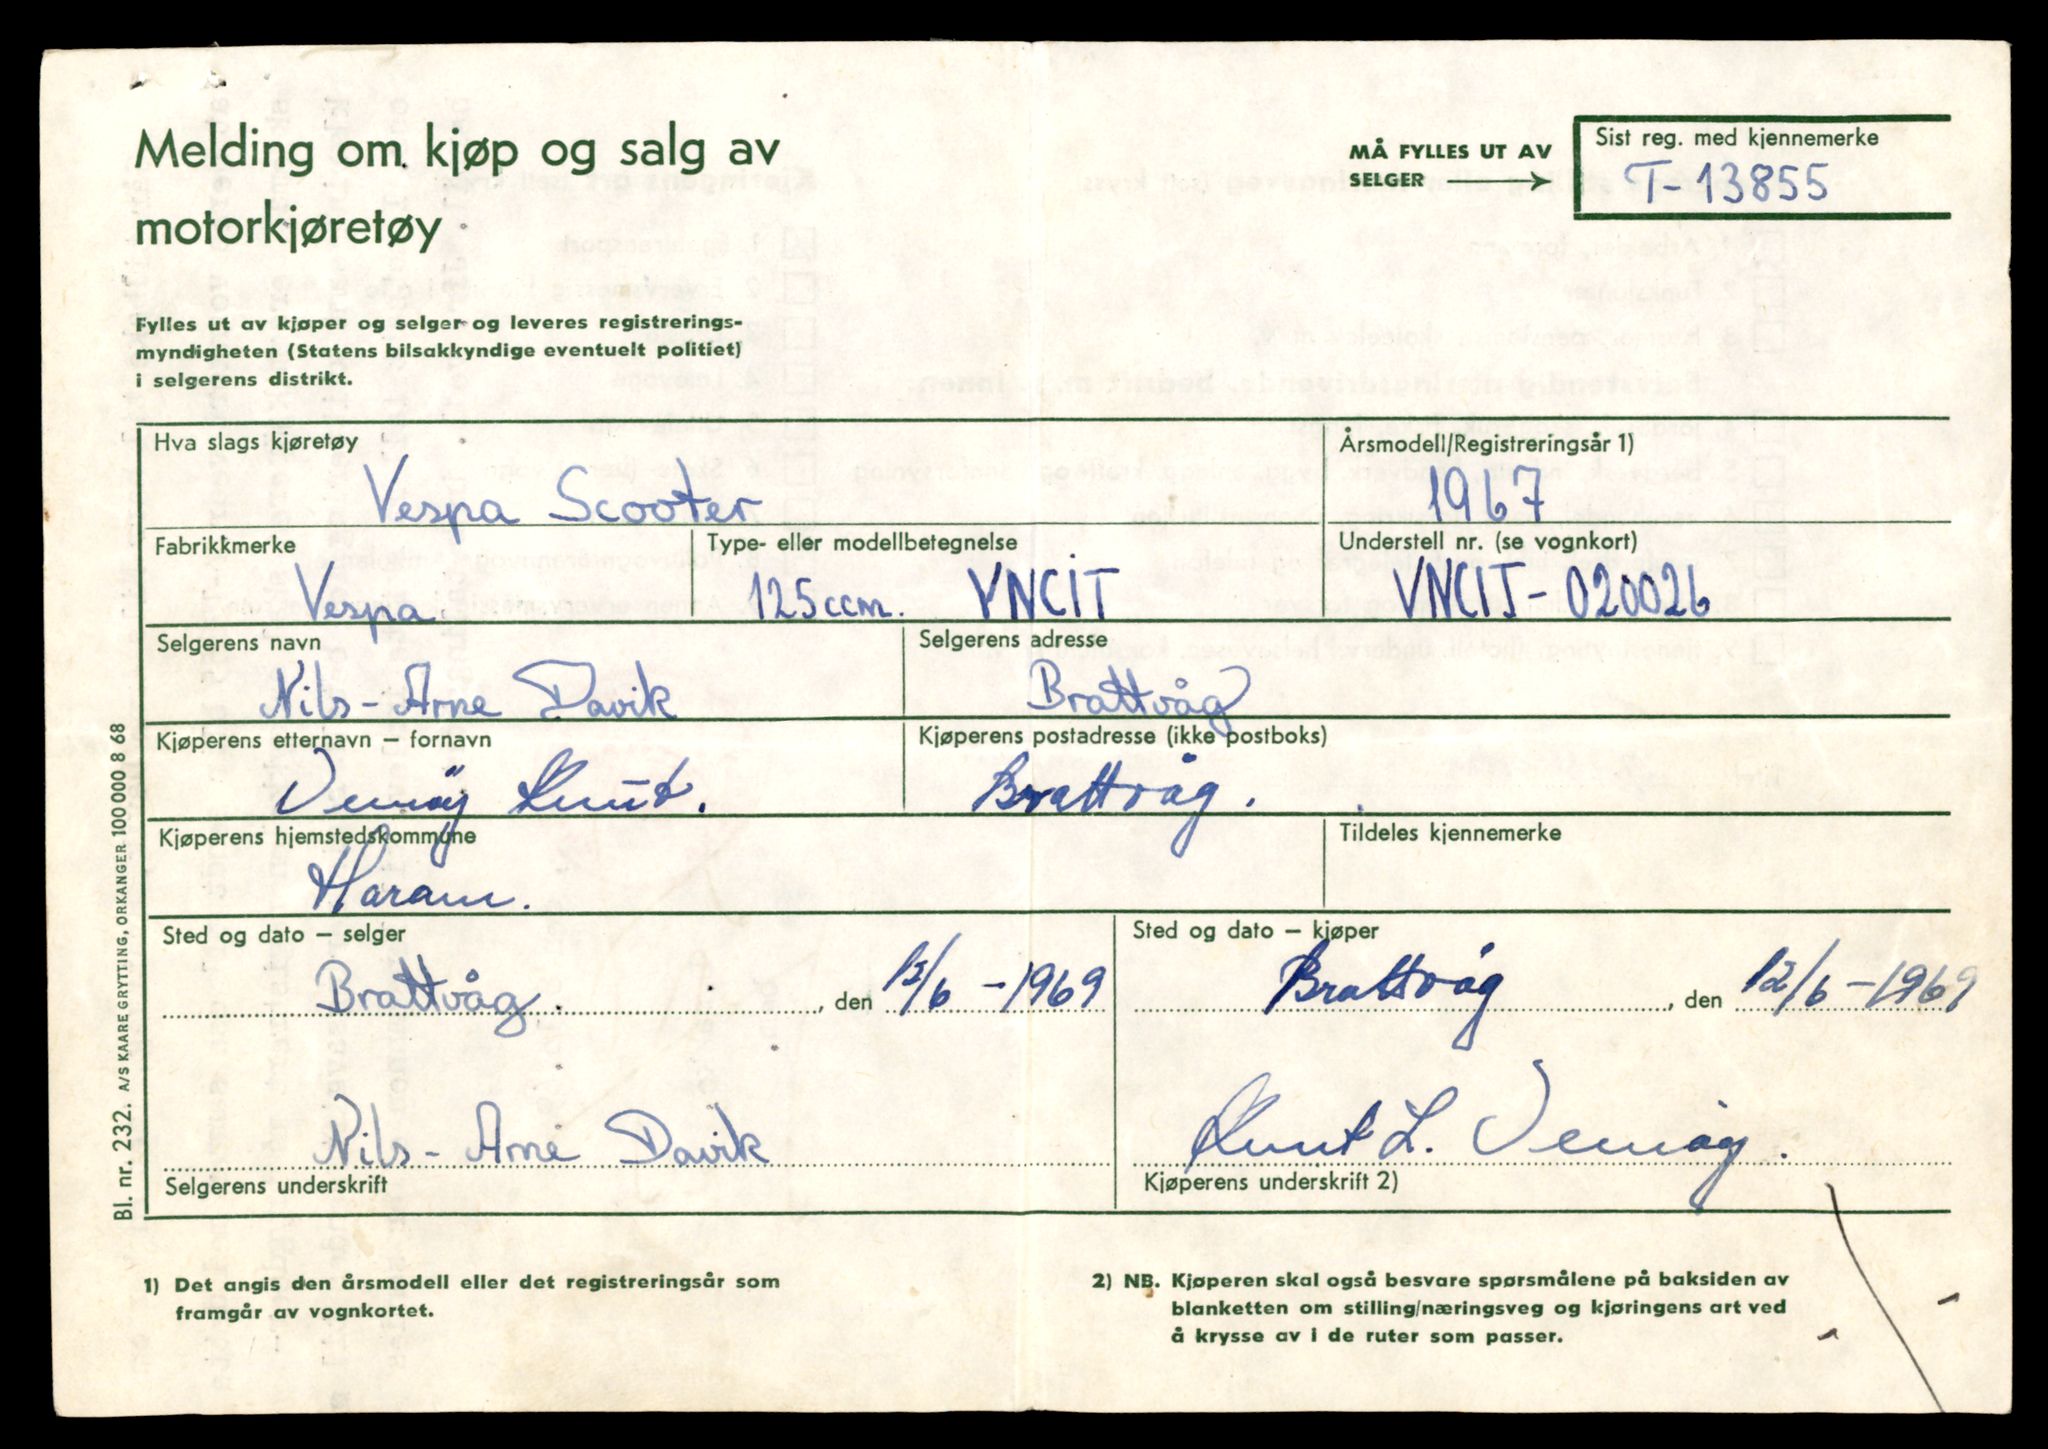 Melding om kjøp og salg av
motorkjøretøy
MÅ FYLLES UT AV
SELGER
Sist reg. med kjennemerke
T-13855
Fylles ut av kjøper og selger og leveres registrerings-
myndigheten (Statens bilsakkyndige eventuelt politiet)
i selgerens distrikt.
Hva slags kjøretøy
Vespa Scooter
Årsmodell/Registreringsår 1)
1967
Fabrikkmerke
Vespa
Type- eller modellbetegnelse
125ccm. VNCIT
Understell nr. (se vognkort)
VNCIT-020026
Selgerens navn
Nils-Arne Davik
Selgerens adresse
Brattvåg
Kjøperens etternavn – fornavn
Vemøy Knut.
Kjøperens postadresse (ikke postboks)
Brattvåg.
Kjøperens hjemstedskommune
Haram.
Tildeles kjennemerke
Sted og dato – selger
Brattvåg., den 12/6 -1969
Sted og dato – kjøper
Brattvåg, den 12/6 -1969
Nils-Arne Davik
Selgerens underskrift
Knut L. Vemøy.
Kjøperens underskrift 2)
1) Det angis den årsmodell eller det registreringsår som
framgår av vognkortet.
2) NB. Kjøperen skal også besvare spørsmålene på baksiden av
blanketten om stilling/næringsveg og kjøringens art ved
å krysse av i de ruter som passer.
Bl. nr. 232. A/S KAARE GRYTTING, ORKANGER 100 000 8 68